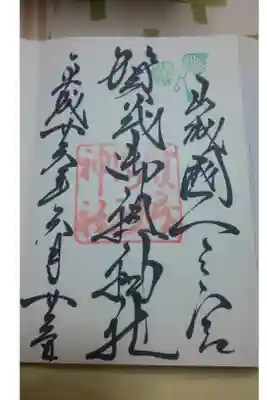 山城國一之宮
賀茂御祖神社
平成廿六年六月廿二日